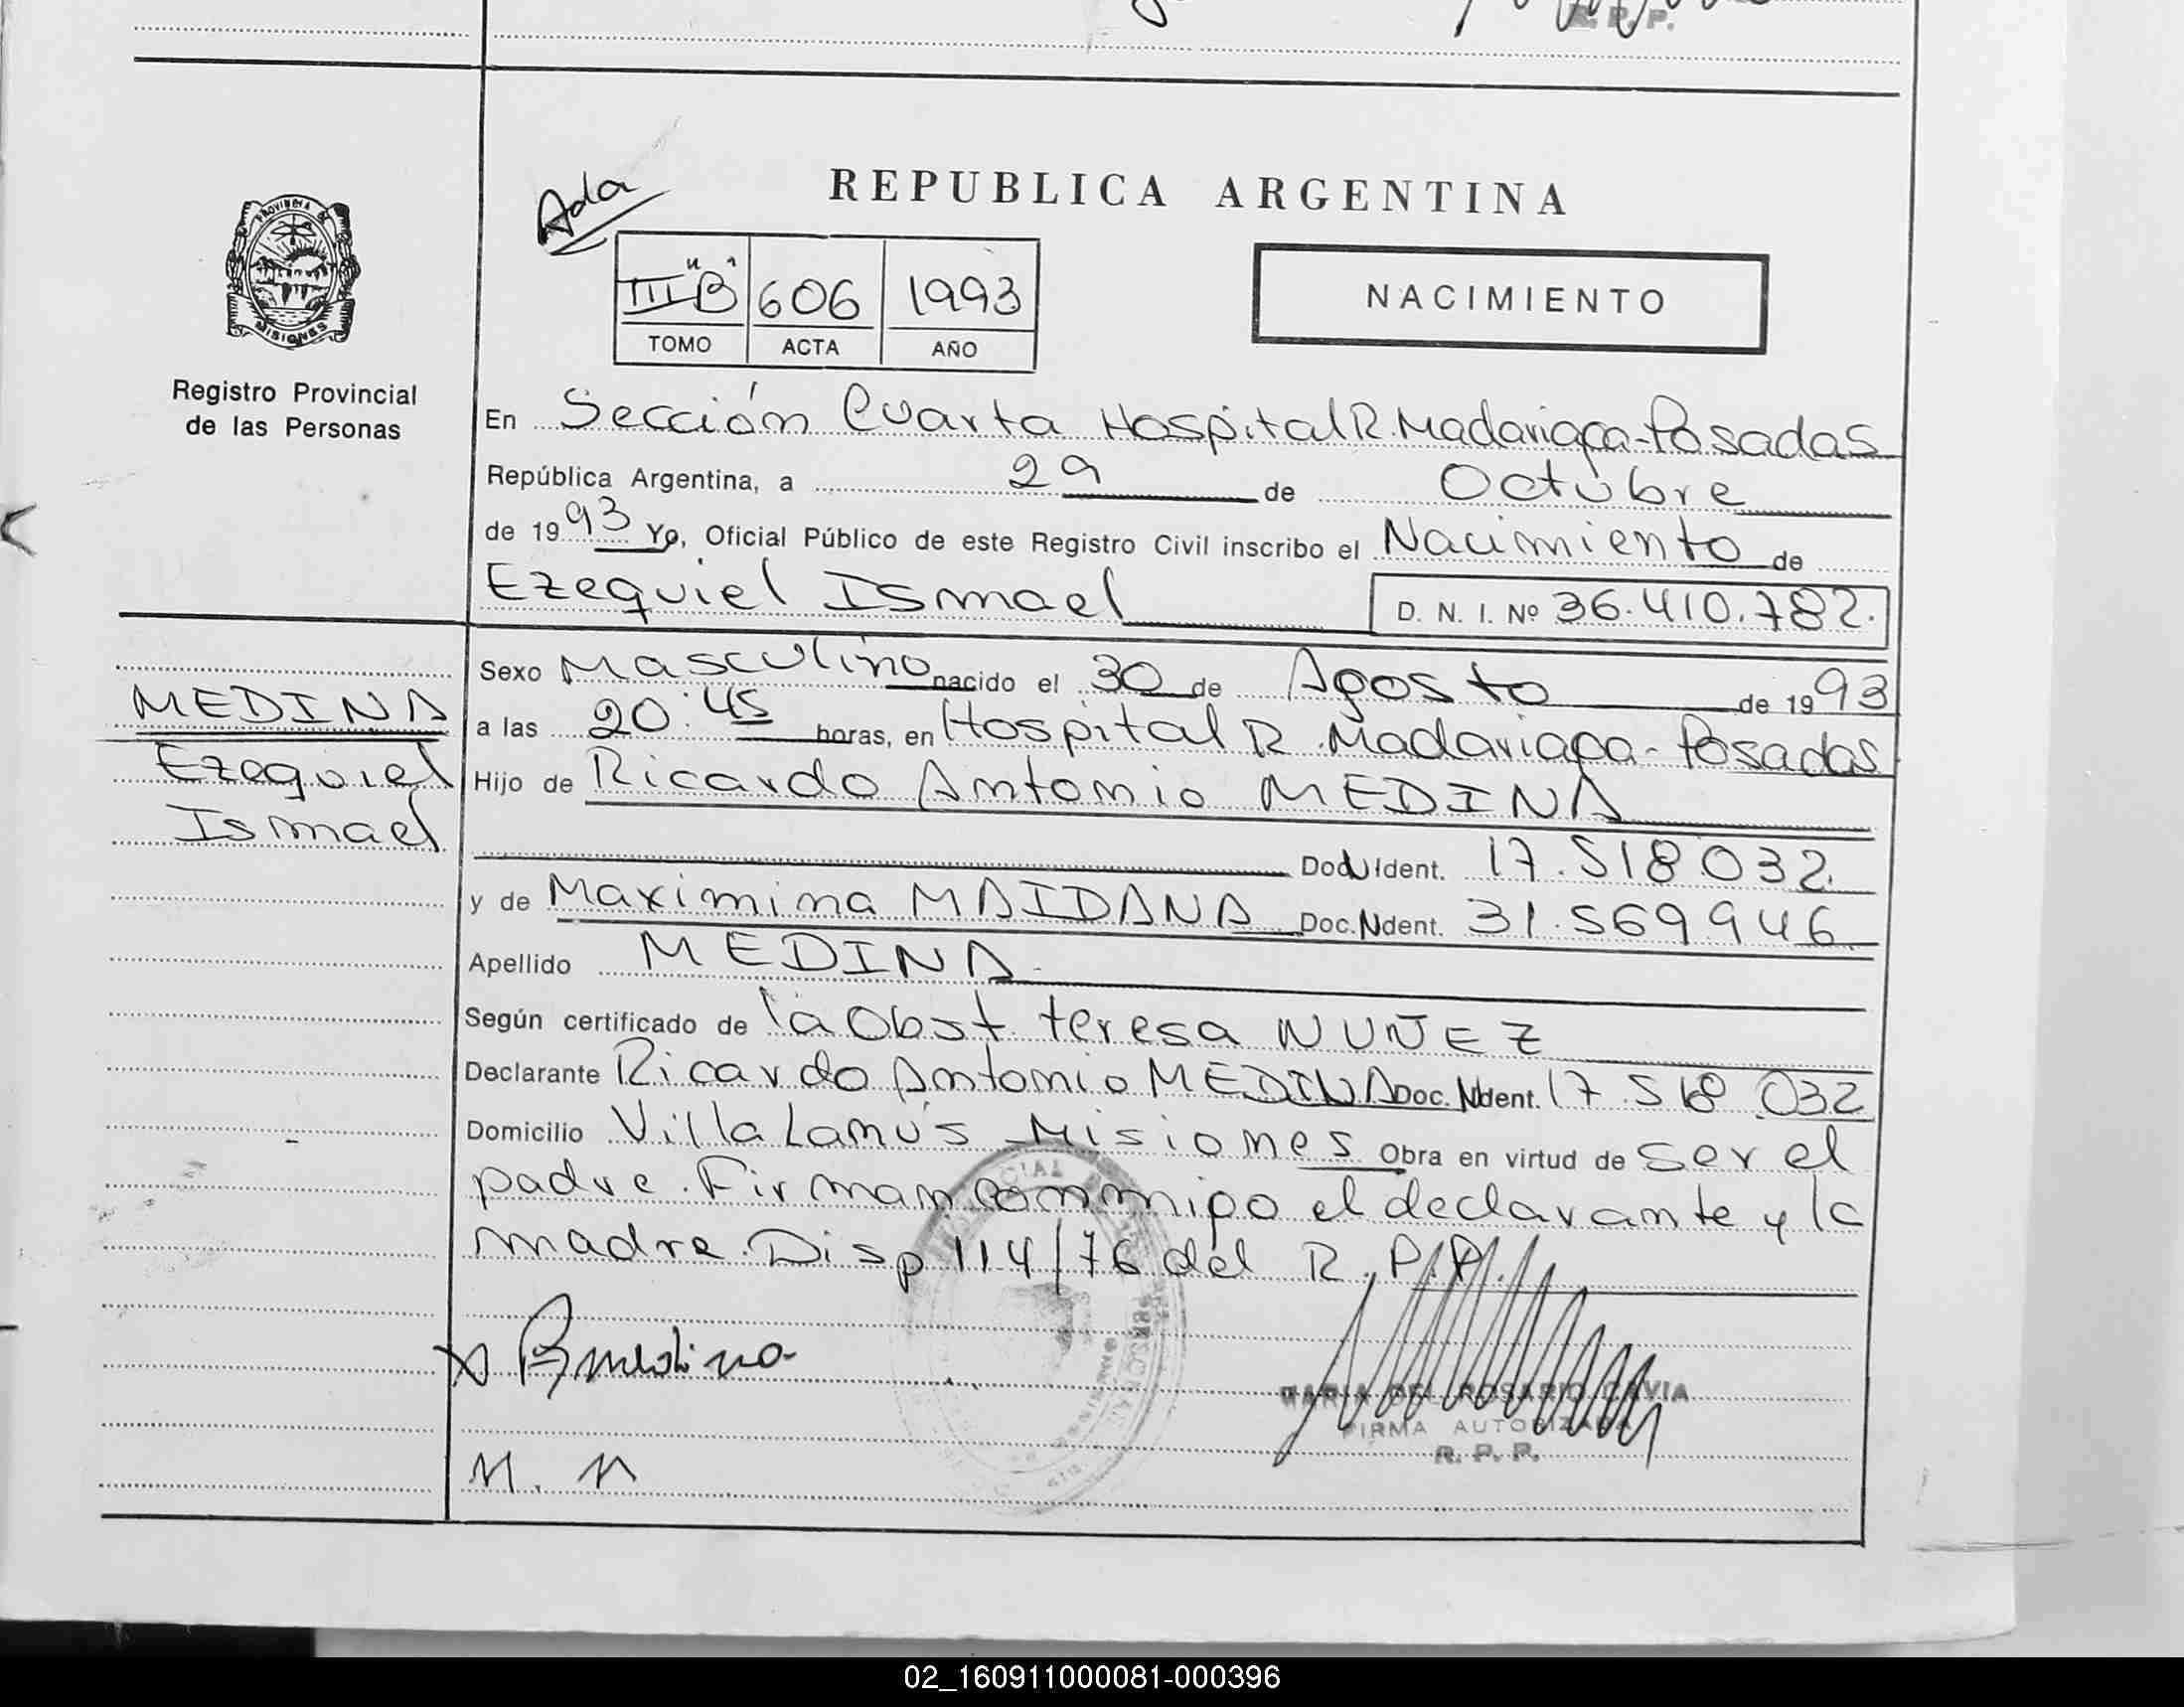 R. P. P.
Ada
REPUBLICA ARGENTINA
III "B" 606 1993
TOMO ACTA AÑO
NACIMIENTO
PROVINCIA DE
MISIONES
Registro Provincial
de las Personas
En Sección Cuarta Hospital R. Madariaga-Posadas
República Argentina, a 29 de Octubre
de 1993 Yo, Oficial Público de este Registro Civil inscribo el Nacimiento de
Ezequiel Ismael D. N. I. Nº 36.410.782.
Sexo Masculino nacido el 30 de Agosto de 1993
MEDINA
Ezequiel
Ismael
a las 20:45 horas, en Hospital R. Madariaga-Posadas
Hijo de Ricardo Antonio MEDINA
Doc. Ident. 17.518.032.
y de Maximina MAIDANA Doc. Ident. 31.569.946.
Apellido MEDINA
Según certificado de la Obst. teresa NUÑEZ
Declarante Ricardo Antonio MEDINA Doc. Ident. 17.518.032
Domicilio Villa Lanús Misiones Obra en virtud de ser el
padre. Firman conmigo el declarante y la
madre. Disp 114/76 del R.P.P.
x Rmedina
MARIA DEL ROSARIO CAVIA
FIRMA AUTORIZADA
R. P. P.
M. M
02_160911000081-000396